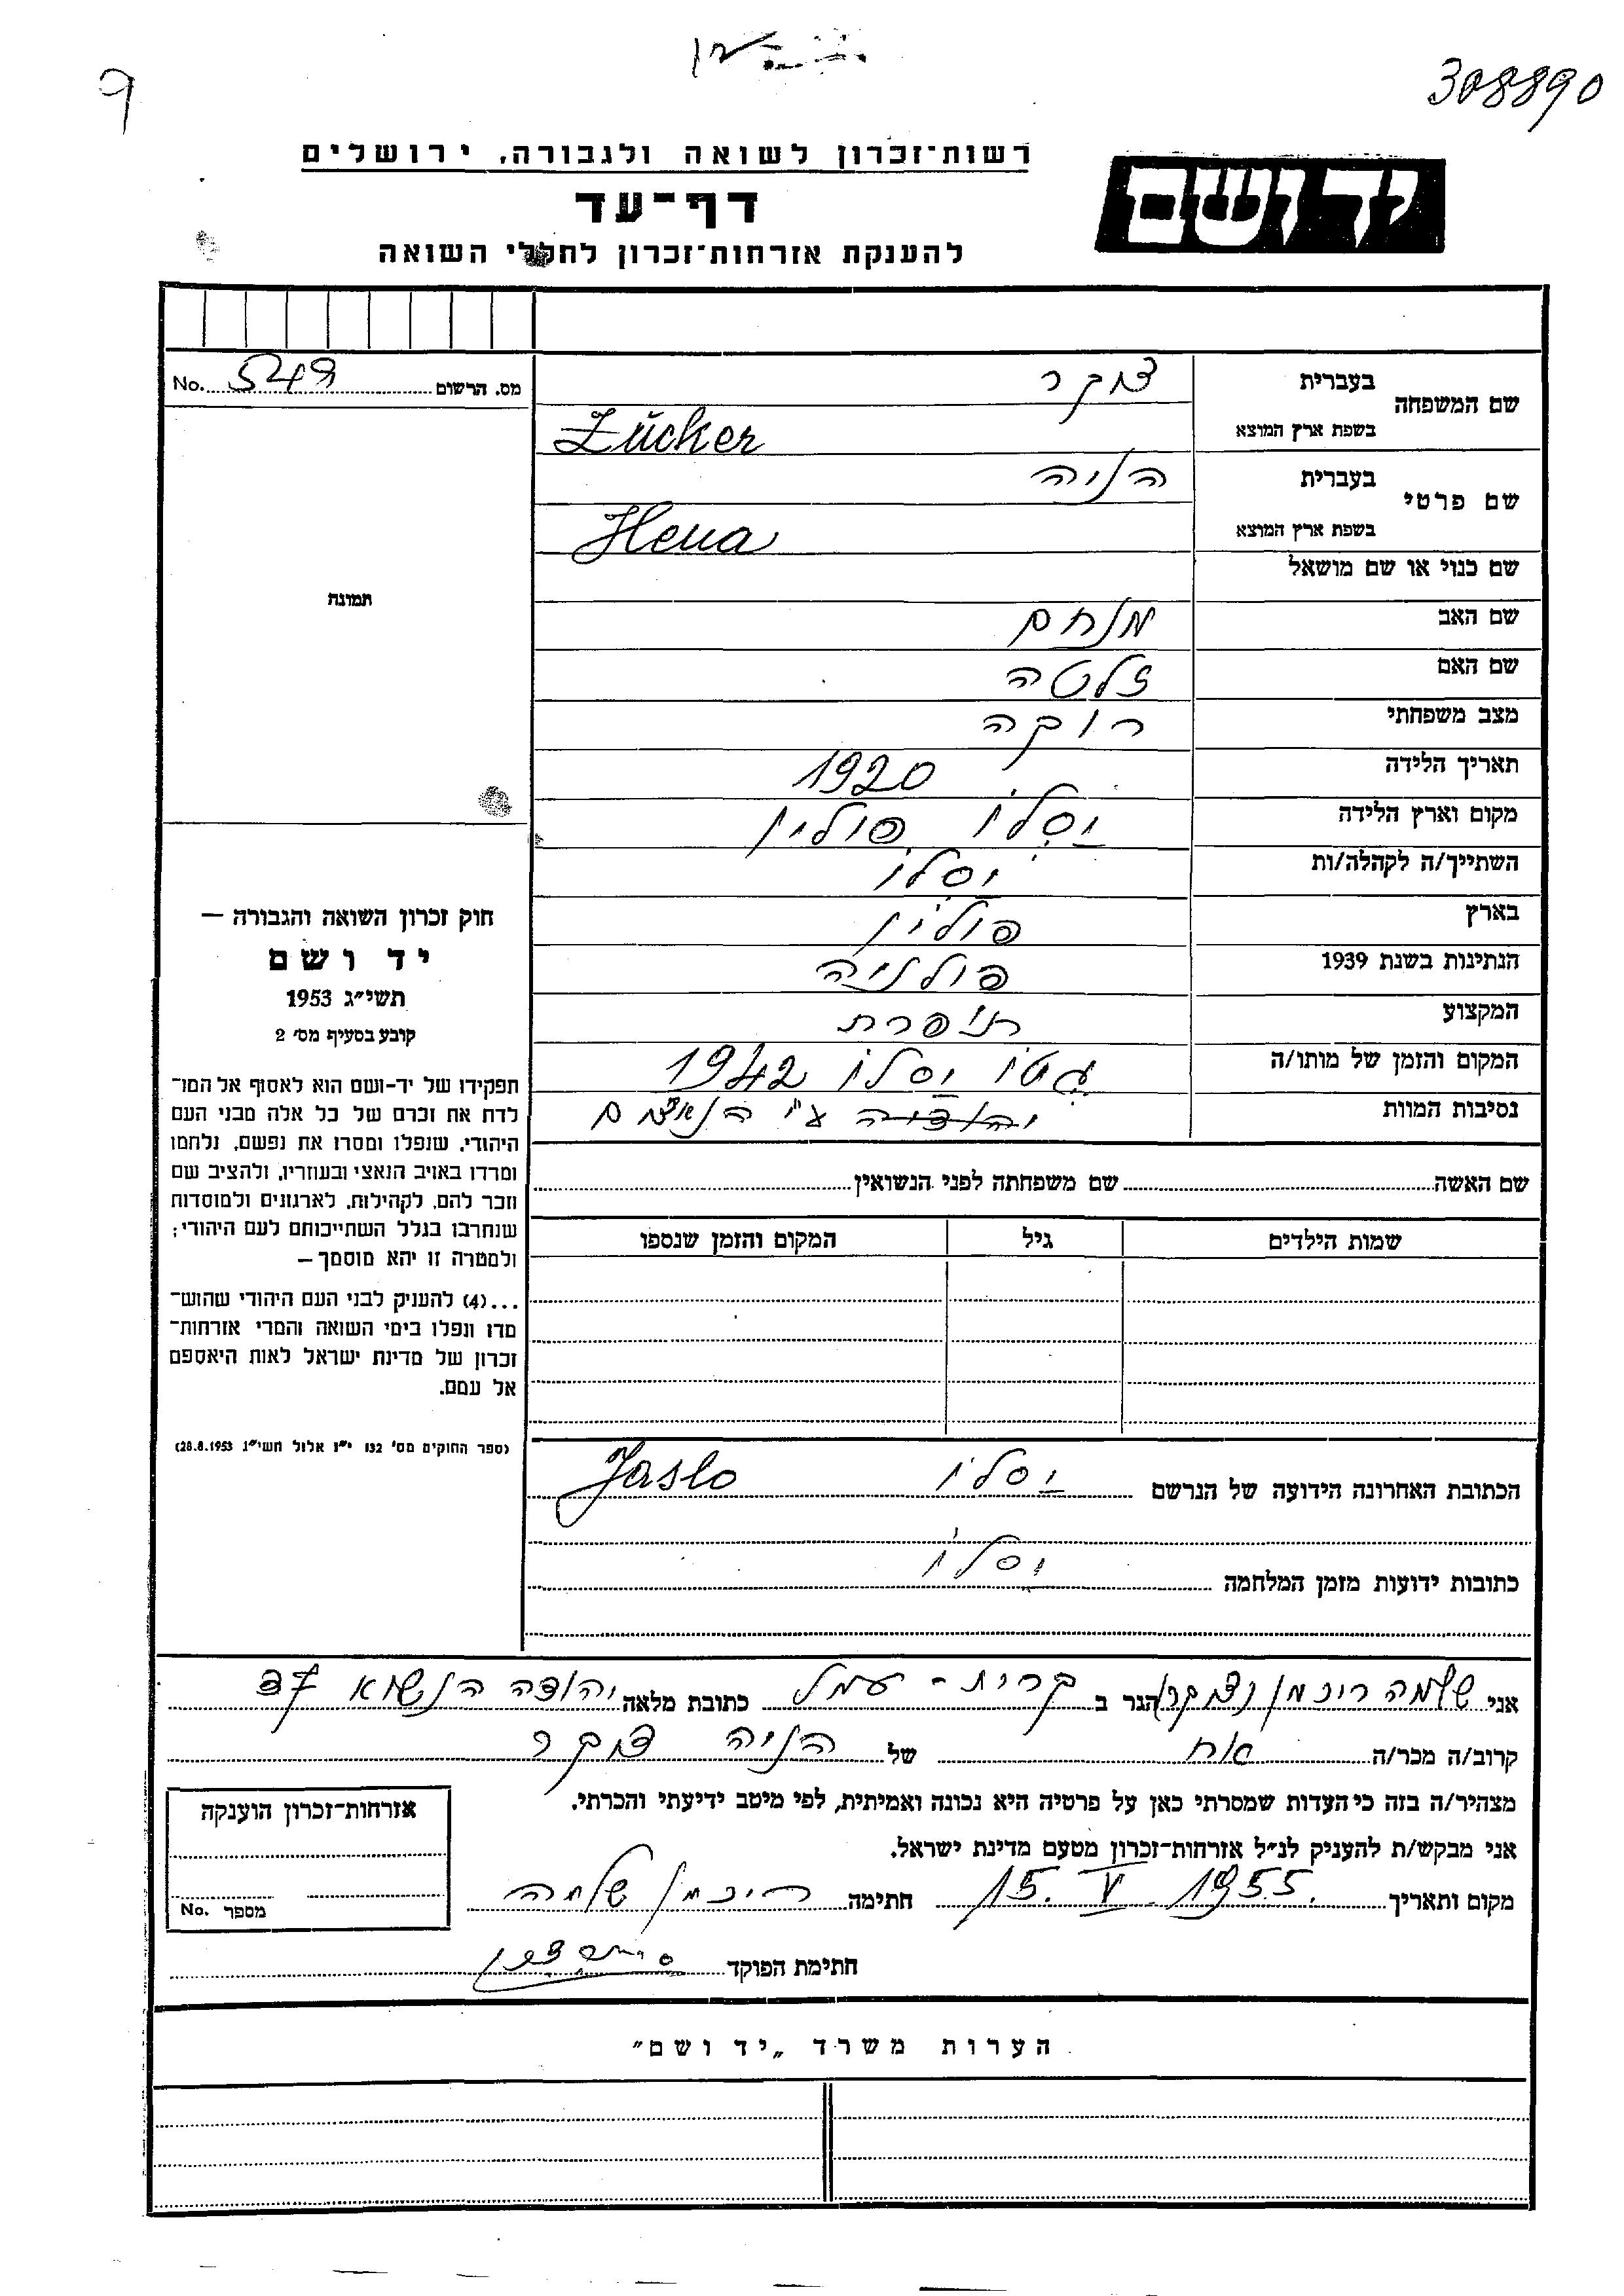 308890
9
יד ושם
רשות־זכרון לשואה ולגבורה, ירושלים
דף־עד
להענקת אזרחות־זכרון לחללי השואה
מס. הרשום 549 No.
תמונה
שם המשפחה בעברית צוקר
בשפת ארץ המוצא Zücker
שם פרטי בעברית הניה
בשפת ארץ המוצא Hena
שם כנוי או שם מושאל
שם האב מנחם
שם האם זלטה
מצב משפחתי רוקה
תאריך הלידה 1920
מקום וארץ הלידה יסלו פולין
השתייך/ה לקהלה/ות יסלו
בארץ פולין
הנתינות בשנת 1939 פולניה
המקצוע תופרת
המקום והזמן של מותו/ה גטו יסלו 1942
נסיבות המוות ע"י הנאצים
שם האשה שם משפחתה לפני הנשואין
שמות הילדים גיל המקום והזמן שנספו
חוק זכרון השואה והגבורה —
יד ושם
תשי״ג 1953
קובע בסעיף מס׳ 2
תפקידו של יד-ושם הוא לאסוף אל המו־
לדת את זכרם של כל אלה מבני העם
היהודי, שנפלו ומסרו את נפשם, נלחמו
ומרדו באויב הנאצי ובעוזריו, ולהציב שם
וזכר להם, לקהילות, לארגונים ולמוסדות
שנחרבו בגלל השתייכותם לעם היהודי;
ולמטרה זו יהא מוסמך —
...(4) להעניק לבני העם היהודי שהוש־
מדו ונפלו בימי השואה והמרי אזרחות־
זכרון של מדינת ישראל לאות היאספם
אל עמם.
(ספר החוקים מס׳ 132 י״ז אלול תשי״ג 28.8.1953)
הכתובת האחרונה הידועה של הנרשם יסלו Jaslo
כתובות ידועות מזמן המלחמה יסלו
אני שלמה ריכמן (צוקר) הגר ב קרית - עמל כתובת מלאה יהודה הנשיא 37
קרוב/ה מכר/ה אח של הניה צוקר
מצהיר/ה בזה כי העדות שמסרתי כאן על פרטיה היא נכונה ואמיתית, לפי מיטב ידיעתי והכרתי.
אני מבקש/ת להעניק לנ״ל אזרחות־זכרון מטעם מדינת ישראל.
מקום ותאריך 15. V. 1955. חתימה ריכמן שלמה
חתימת הפוקד
אזרחות־זכרון הוענקה
מספר No.
הערות משרד „יד ושם״